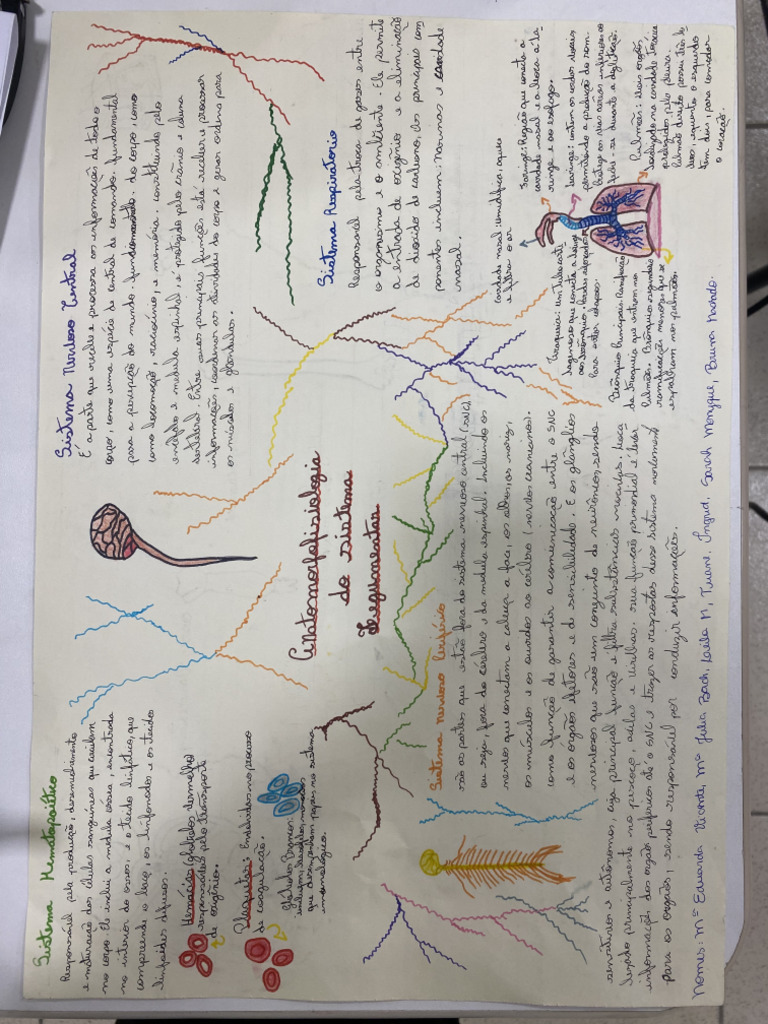 Sistema Hematopoiético
Responsável pela produção, desenvolvimento
e maturação das células sanguíneas que circulam
no corpo. Ele inclui a medula óssea, encontrada
no interior do ossos, e o tecido linfático, que
compreende o baço, os linfonodos e os tecidos
linfoides difusos.
Hemácias (glóbulos vermelho)
responsáveis pelo transporte
de oxigênio.
Plaquetas: Envolvidas no processo
de coagulação.
Glóbulos Brancos:
que desempenham papéis no sistema
imunológico.
Sistema Nervoso Central
É a parte que recebe e processa as informação de todo o
corpo, como uma espécie de central de comando. fundamental
para a percepção do mundo. do corpo, como
como locomoção, raciocínio, e memória. constituindo pelo
encéfalo e medula espinhal, e é protegido pelo crânio e coluna
vertebral. Entre suas principais função está receber e processar
informação, coordenar as atividades do corpo e gerar ordens para
os músculos e glândulas.
Anatomofisiologia
do sistema
Tegumentar
Sistema Respiratorio
Responsável pela troca de gases entre
o organismo e o ambiente. Ele permite
a entrada de oxigênio e a eliminação
de dióxido de carbono. Os principais com
ponentes incluem: Narinas e cavidade
nasal.
Cavidade nasal: umidifica, aquece
e filtra o ar
Faringe: Região que conecta a
cavidade nasal e a boca a la
ringe e ao esôfago.
Laringe: contém as cordas vocais
permitindo a produção de som.
Protege as vias aéreas inferiores ao
fechar-se durante a deglutição.
Pulmões: dois orgãos
localizados na cavidade Torácica
protegidos pela pleura.
Pulmão direito possui três lo
bos, equanto o esquerdo
tem dois, para acomodar
o coração.
Traqueia: Um tubo carti
laginoso que conecta a laringe
aos brônquios.
Brônquio Principais Ramificação
da traqueia que entram nos
pulmões. Brônquios segundário
ramificação menores que se
espalham nos pulmões.
Sistema Nervoso Periférico
são as partes que estão fora do sistema nervoso central (SNC)
ou seja, fora do cérebro e da medula espinhal. Incluindo os
nervos que conectam a cabeça a face, os olhos, os nariz,
os músculos e os ouvidos ao cérebro (nervos cranianos).
como função de garantir a comunicação entre o SNC
e os orgãos efetores e de sensibilidade. E os glânglios
nervosos que são um conjunto de neurônios, sendo
sensitivos e autônomos, cuja principal função é filtra substâncias nocivas. Loca
lizado principalmente no pescoço, axilas e virilhas. sua função primordial é levar
informações dos orgão periféricos até o SNC e trazer as respostas desse sistema novamente
para os orgãos, sendo responsável por conduzir informações.
Nomes: Mª Eduarda Vicente, Mª Julia Bach, Leila M, Tuane, Ingrid, Sarah Monyque, Bruna